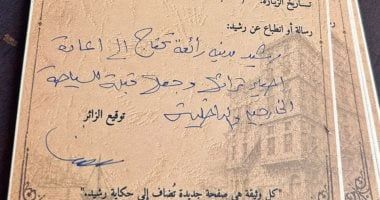 تساريخ الزيارة:
رسالة أو انطباع عن رشيد:
رشيد مدينه رائعة تحتاج إلى اعادة
احياء تراثها وجعلها قبلة للسياحة
الخارجية والداخلية
توقيع الزائر
"كل وثيقة هي صفحة جديدة تُضاف إلى حكاية رشيد."